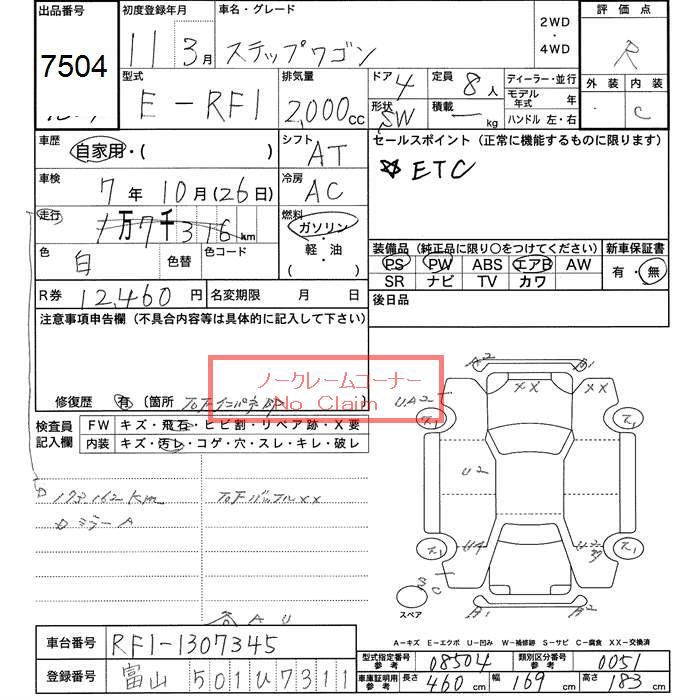 出品番号
7504
初度登録年月
11 3月
車名・グレード
ステップワゴン
2WD
・
4WD
評価点
R
外装 内装
C
型式
E-RF1
排気量
2,000cc
ドア 4
形状 SW
定員 8人
積載 kg
ディーラー・並行
モデル年式 年
ハンドル 左・右
車歴
自家用・( )
シフト
AT
セールスポイント (正常に機能するものに限ります)
☆ ETC
車検
7年 10月(26日)
冷房
AC
走行
1万7千316km
燃料
ガソリン
・
軽・油
( )
色
白
色替
色コード
装備品(純正品に限り○をつけてください)
PS PW ABS エアB AW
SR ナビ TV カワ
新車保証書
有・無
R券 12,460円
名変期限 月 日
後日品
注意事項申告欄(不具合内容等は具体的に記入して下さい)
ノークレームコーナー
No Claim
修復歴 有 〔箇所
検査員
記入欄
FW キズ・飛石・ヒビ割・リペア跡・X要
内装 キズ・汚レ・コゲ・穴・スレ・キレ・破レ
173162km
A2
B1
XX
XX
UA2
ス1
ス1
U2
U4
ス1
ス1
スペア
B1
A2
A-キズ E-エクボ U-凹み W-補修跡 S-サビ C-腐食 XX-交換済
車台番号
RF1-1307345
登録番号
富山 501 ひ 7311
型式指定番号
参考
08504
類別区分番号
参考
0051
車庫証明用
参考
長さ 460cm
幅 169cm
高さ 183cm